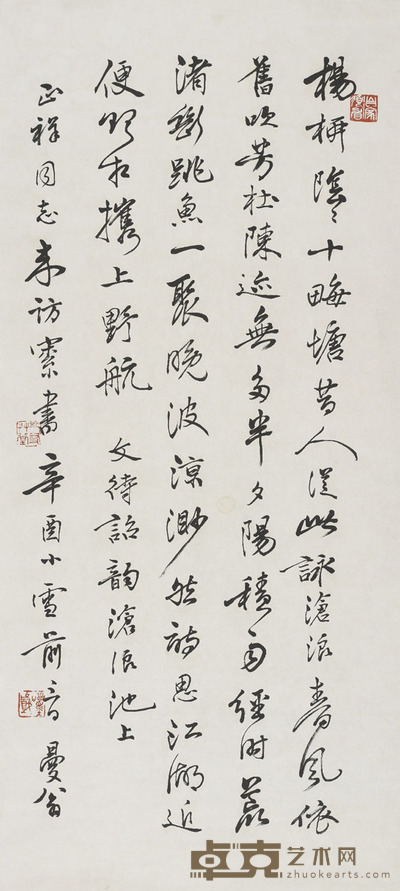 楊柳陰〻十畮塘昔人從此詠滄浪春風依
舊吹芳杜陳迹無多半夕陽積雨經時荒
渚斷跳魚一聚晚波涼渺然詩思江湖近
便欲相攜上野航 文待詔韻滄浪池上
正祥同志來訪索書 辛酉小雪前 曼翁
卓克艺术网
zhuokearts.com